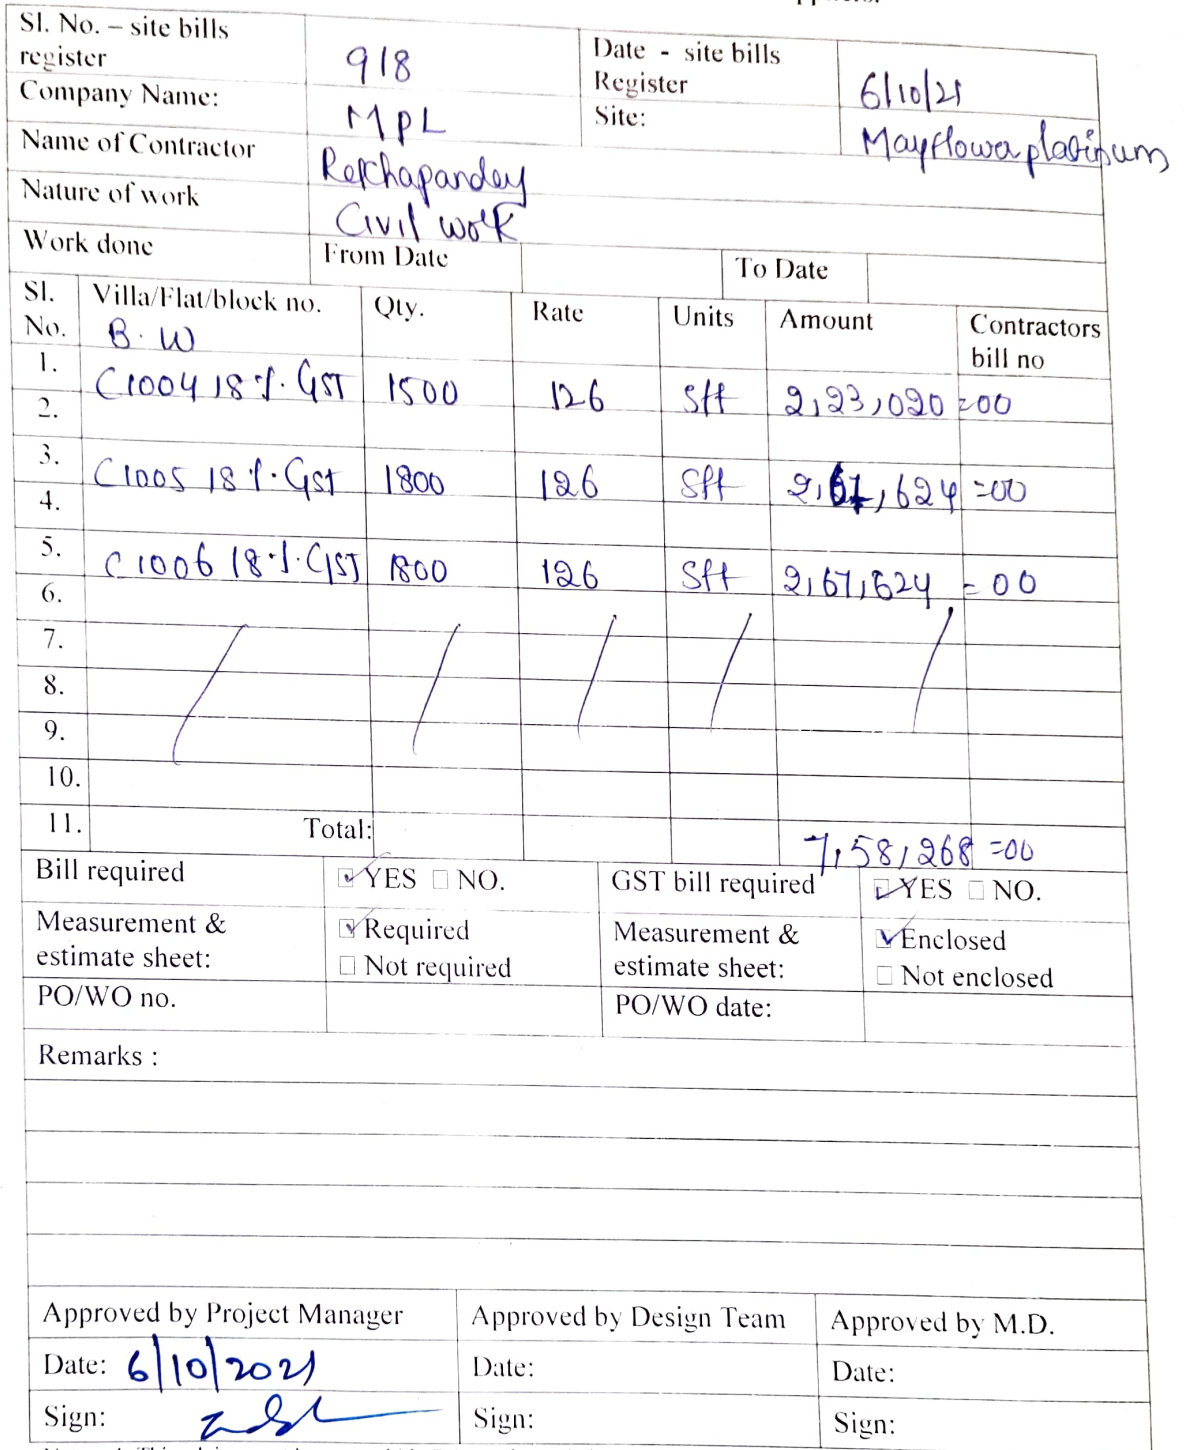 Sl. No. – site bills register 918 Date - site bills Register 6/10/21
Company Name: MPL Site: Mayflower platinum
Name of Contractor
Nature of work Civil work
Work done From Date To Date
Sl. No. Villa/Flat/block no. Qty. Rate Units Amount Contractors bill no
B.W
1. C1004 18%. GST 1500 126 Sft 2,23,020=00
2.
3. C1005 18%. GST 1800 126 Sft 2,67,624=00
4.
5. C1006 18%. GST 1800 126 Sft 2,67,624=00
6.
7.
8.
9.
10.
11. Total: 7,58,268=00
Bill required YES NO. GST bill required YES NO.
Measurement & estimate sheet: Required Not required Measurement & estimate sheet: Enclosed Not enclosed
PO/WO no. PO/WO date:
Remarks :
Approved by Project Manager Approved by Design Team Approved by M.D.
Date: 6/10/2021 Date: Date:
Sign: Sign: Sign: